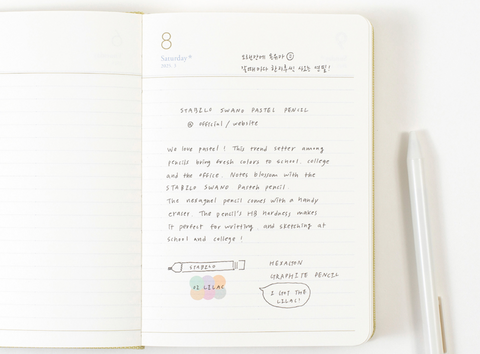 8
Saturday
STABILO SWANO PASTEL PENCIL
@ official / website
We love pastel! This trend setter among
pencils bring fresh colors to school, college
and the office. Notes blossom with the
STABILO SWANO Pastell pencil.
The hexagnal pencil comes with a handy
eraser. The pencil's HB hardness makes
it perfect for writing, and sketching at
school and college!
STABILO
HEXAGON
GRAPHITE PENCIL
01 LILAC
I GOT THE
LILAC!